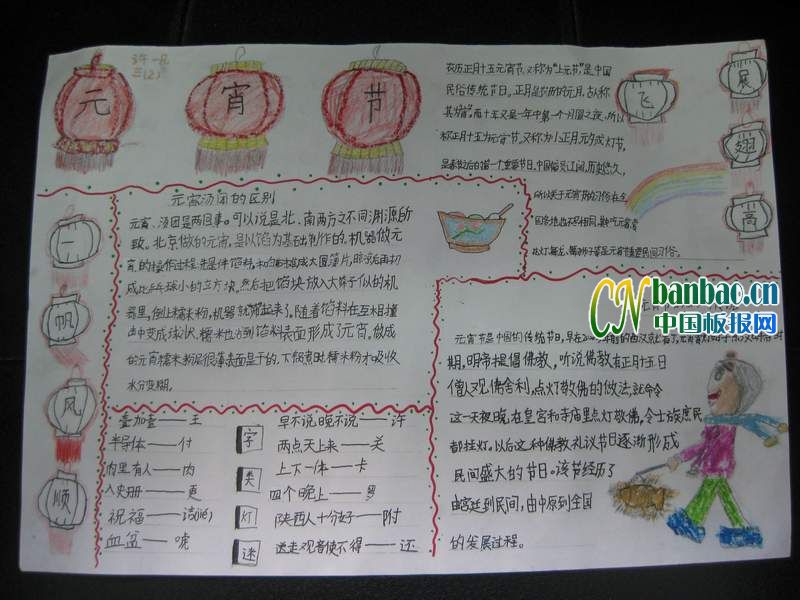 许一凡
三(2)
元宵节
农历正月十五元宵节,又称为“上元节”是中国
民俗传统节日。正月是农历的元月,古人称
其为“宵”,而十五又是一年中第一个月圆之夜,所以
称正月十五为元宵节。又称为小正月、元夕或灯节,
是春节之后的第一个重要节日。中国幅员辽阔,历史悠久,
所以关于元宵节的习俗在全
国各地也不尽相同,其中吃元宵
飞
展
翅
高
一
帆
风
顺
元宵汤团的区别
元宵、汤团是两回事。可以说是北、南两方之不同渊源所
致。北京做的元宵,是以馅为基础制作的。机器做元
宵的操作过程,先是伴馅料,和匀后摊成大圆薄片,晾凉后再切
成比乒乓球小的立方块。然后把馅块放入大筛子似的机
器里,倒上糯米粉,机器就筛起来了。随着馅料在互相撞
击中变成球状,糯米也沾到馅料表面形成了元宵。做成
的元宵糯米粉层很薄表面是干的,下锅煮时糯米粉才吸收
水分变糊。
CN banbao.cn
中国板报网
元宵节是中国的传统节日,早在
期,明帝提倡佛教,听说佛教有正月十五日
僧人观佛舍利,点灯敬佛的做法,就命令
这一天夜晚,在皇宫和寺庙里点灯敬佛,令士族庶民
都挂灯。以后这种佛教礼仪节日逐渐形成
民间盛大的节日。该节经历了
由宫廷到民间,由中原到全国
的发展过程。
字
类
灯
迷
叠加叠——王
半导体——付
内里有人——肉
祝福——
血盆——唬
早不说晚不说——许
两点天上来——关
上下一体——卡
四个晚上——罗
陕西人十分好——附
送走观音使不得——还